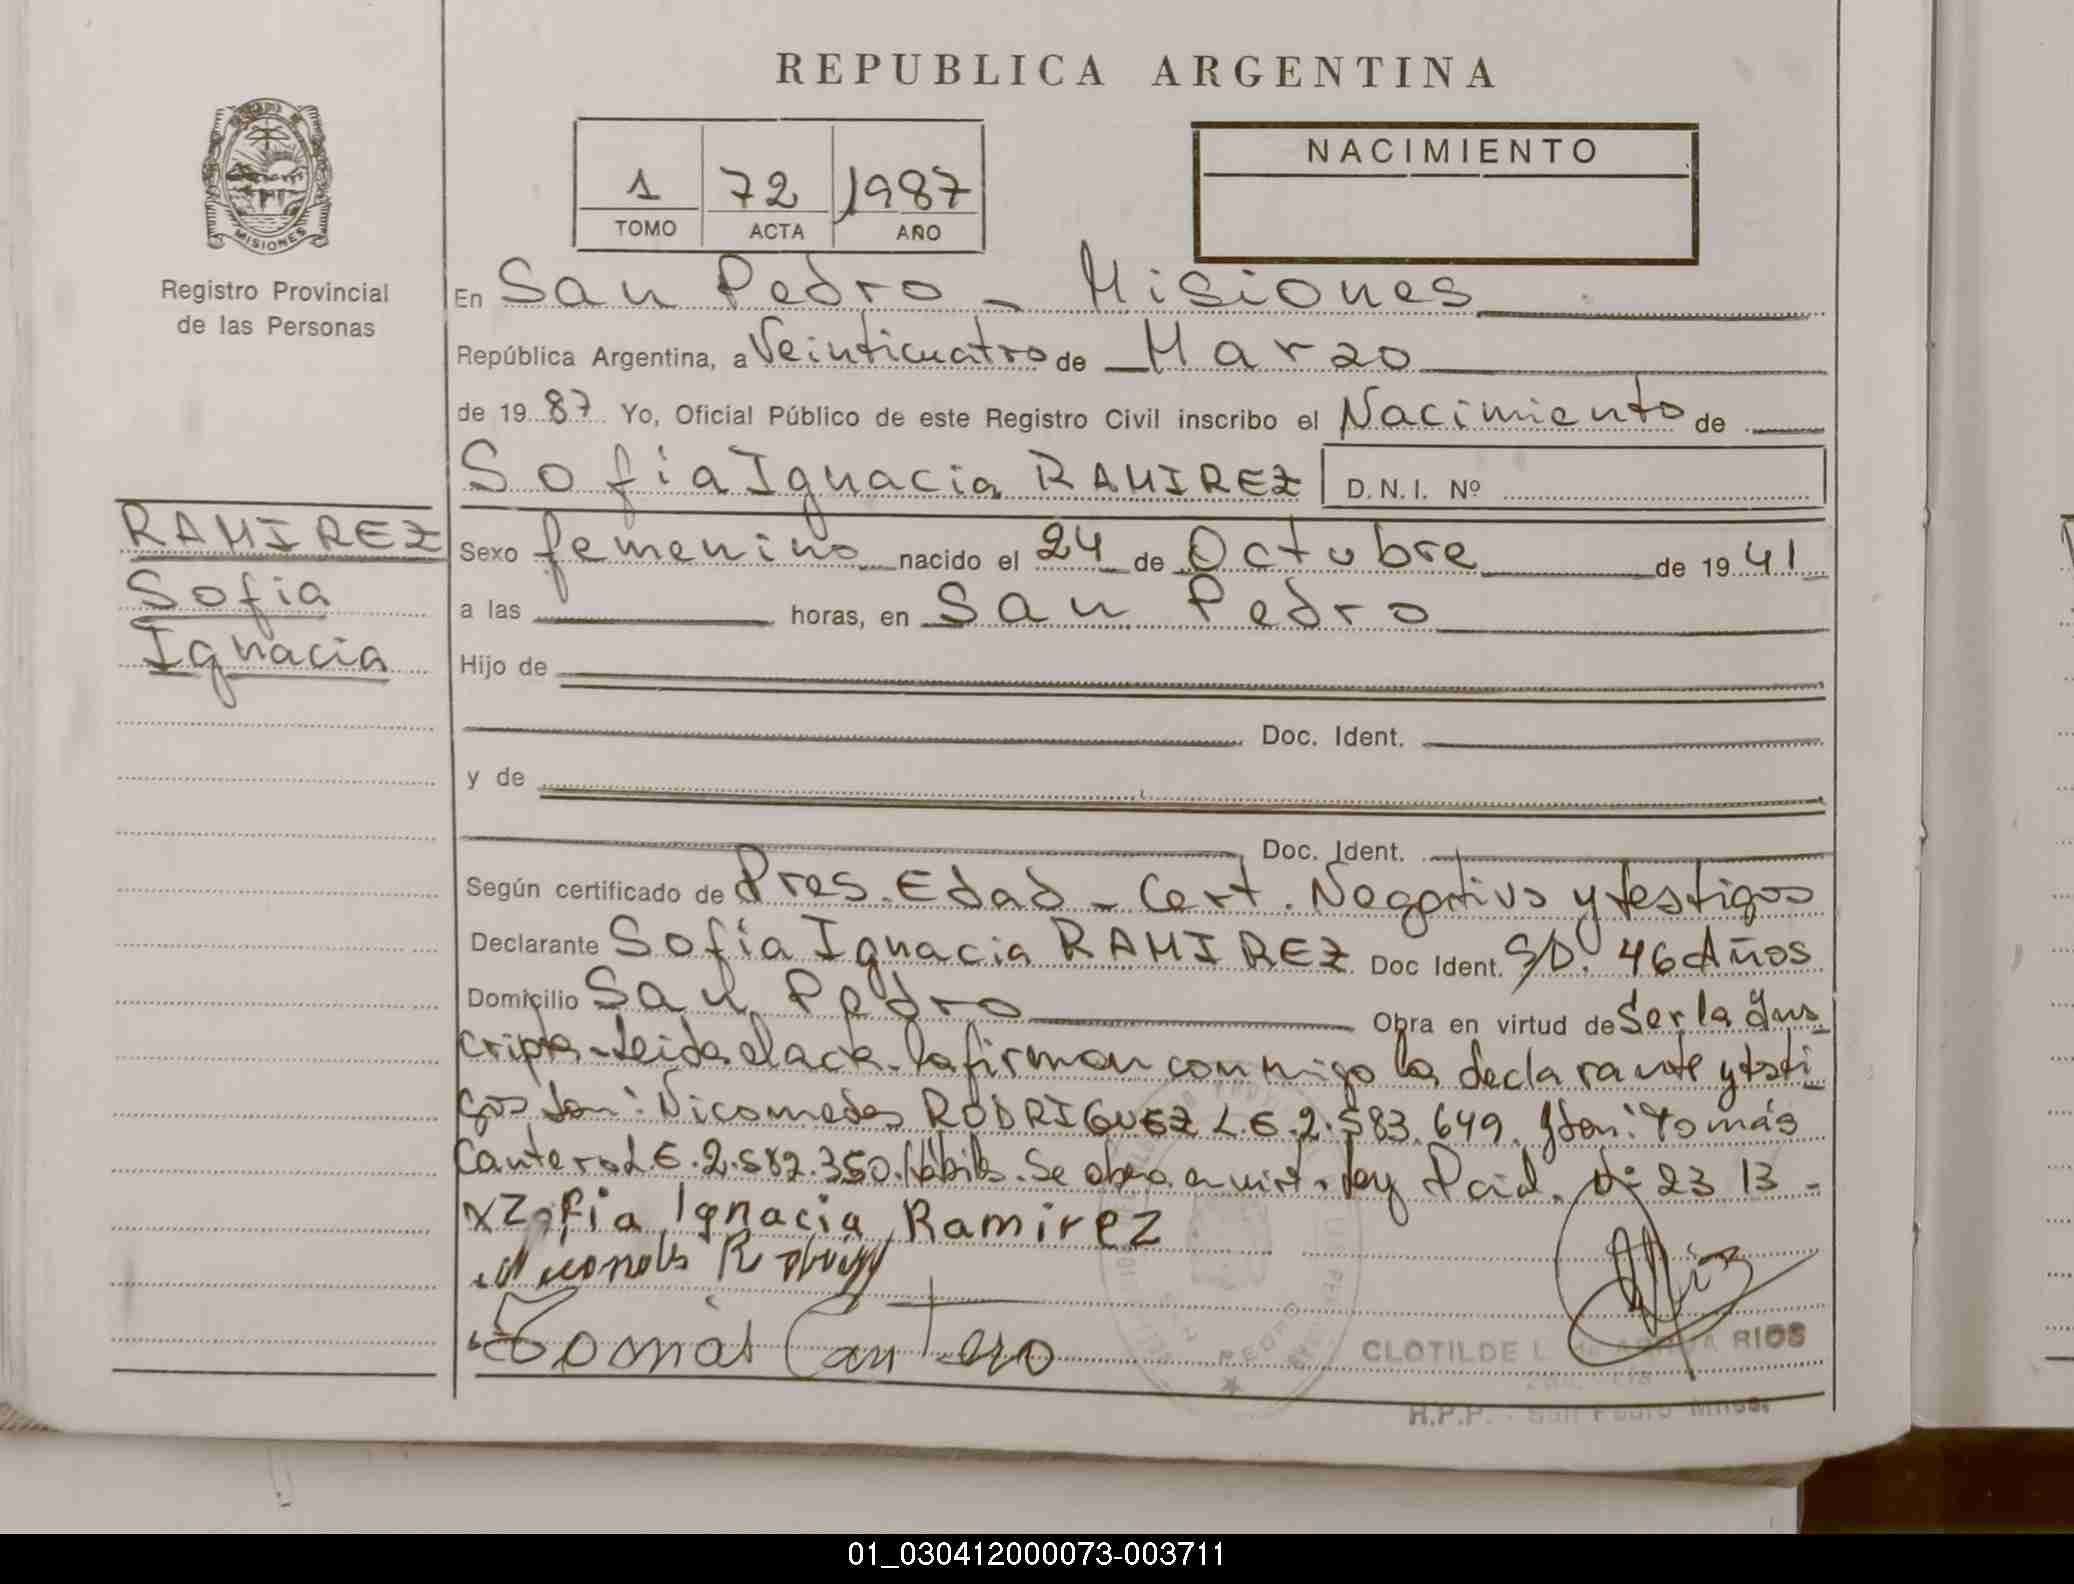 REPUBLICA ARGENTINA
MISIONES
Registro Provincial
de las Personas
1 72 1987
TOMO ACTA AÑO
NACIMIENTO
En San Pedro - Misiones
República Argentina, a Veinticuatro de Marzo
de 19 87 Yo, Oficial Público de este Registro Civil inscribo el Nacimiento de
Sofia Ignacia RAMIREZ D.N.I. Nº
RAMIREZ
Sofia
Ignacia
Sexo femenino nacido el 24 de Octubre de 19 41
a las horas, en San Pedro
Hijo de
Doc. Ident.
y de
Doc. Ident.
Según certificado de Pres. Edad - Cert. Negativo y testigos
Declarante Sofía Ignacia RAMIREZ Doc Ident. S/D. 46 Años
Domicilio San Pedro Obra en virtud de Ser la Ins
cripta - Leida el acta - la firman conmigo la declarante y testi
gos Don: Nicomedes RODRIGUEZ L.E. 2.583.649. y Don: Tomás
Cantero L.E. 2.582.350. Hábiles. Se obra en virt. Ley Pcial. Nº 23 13 -
x Zofia Ignacia Ramirez
Tomás Cantero
CLOTILDE L. RIOS
H.P.P. - San Pedro Mnes.
01_030412000073-003711